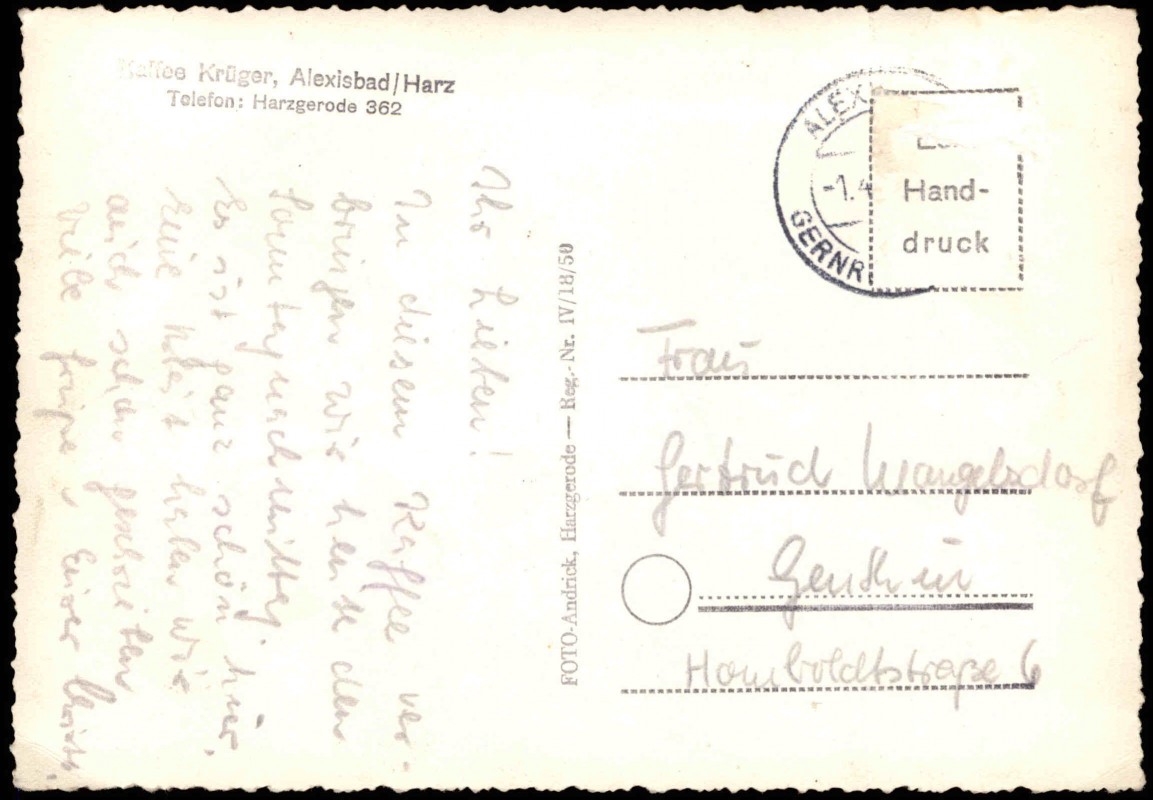 Kaffee Krüger, Alexisbad/Harz
Telefon: Harzgerode 362
Ihr Lieben!
In diesem Kaffee ver-
bringen wir heute den
Sonntagnachmittag.
Es ist ganz schön hier,
eine habe wir
auch schon geschrieben
Viele Grüße, Eurer
FOTO-Andrick, Harzgerode — Reg.-Nr. IV/18/50
ALEX
-1.4
GERNR
Hand-
druck
Frau
Gertrud Wangelsdorf
Genthin
Humboldtstraße 6